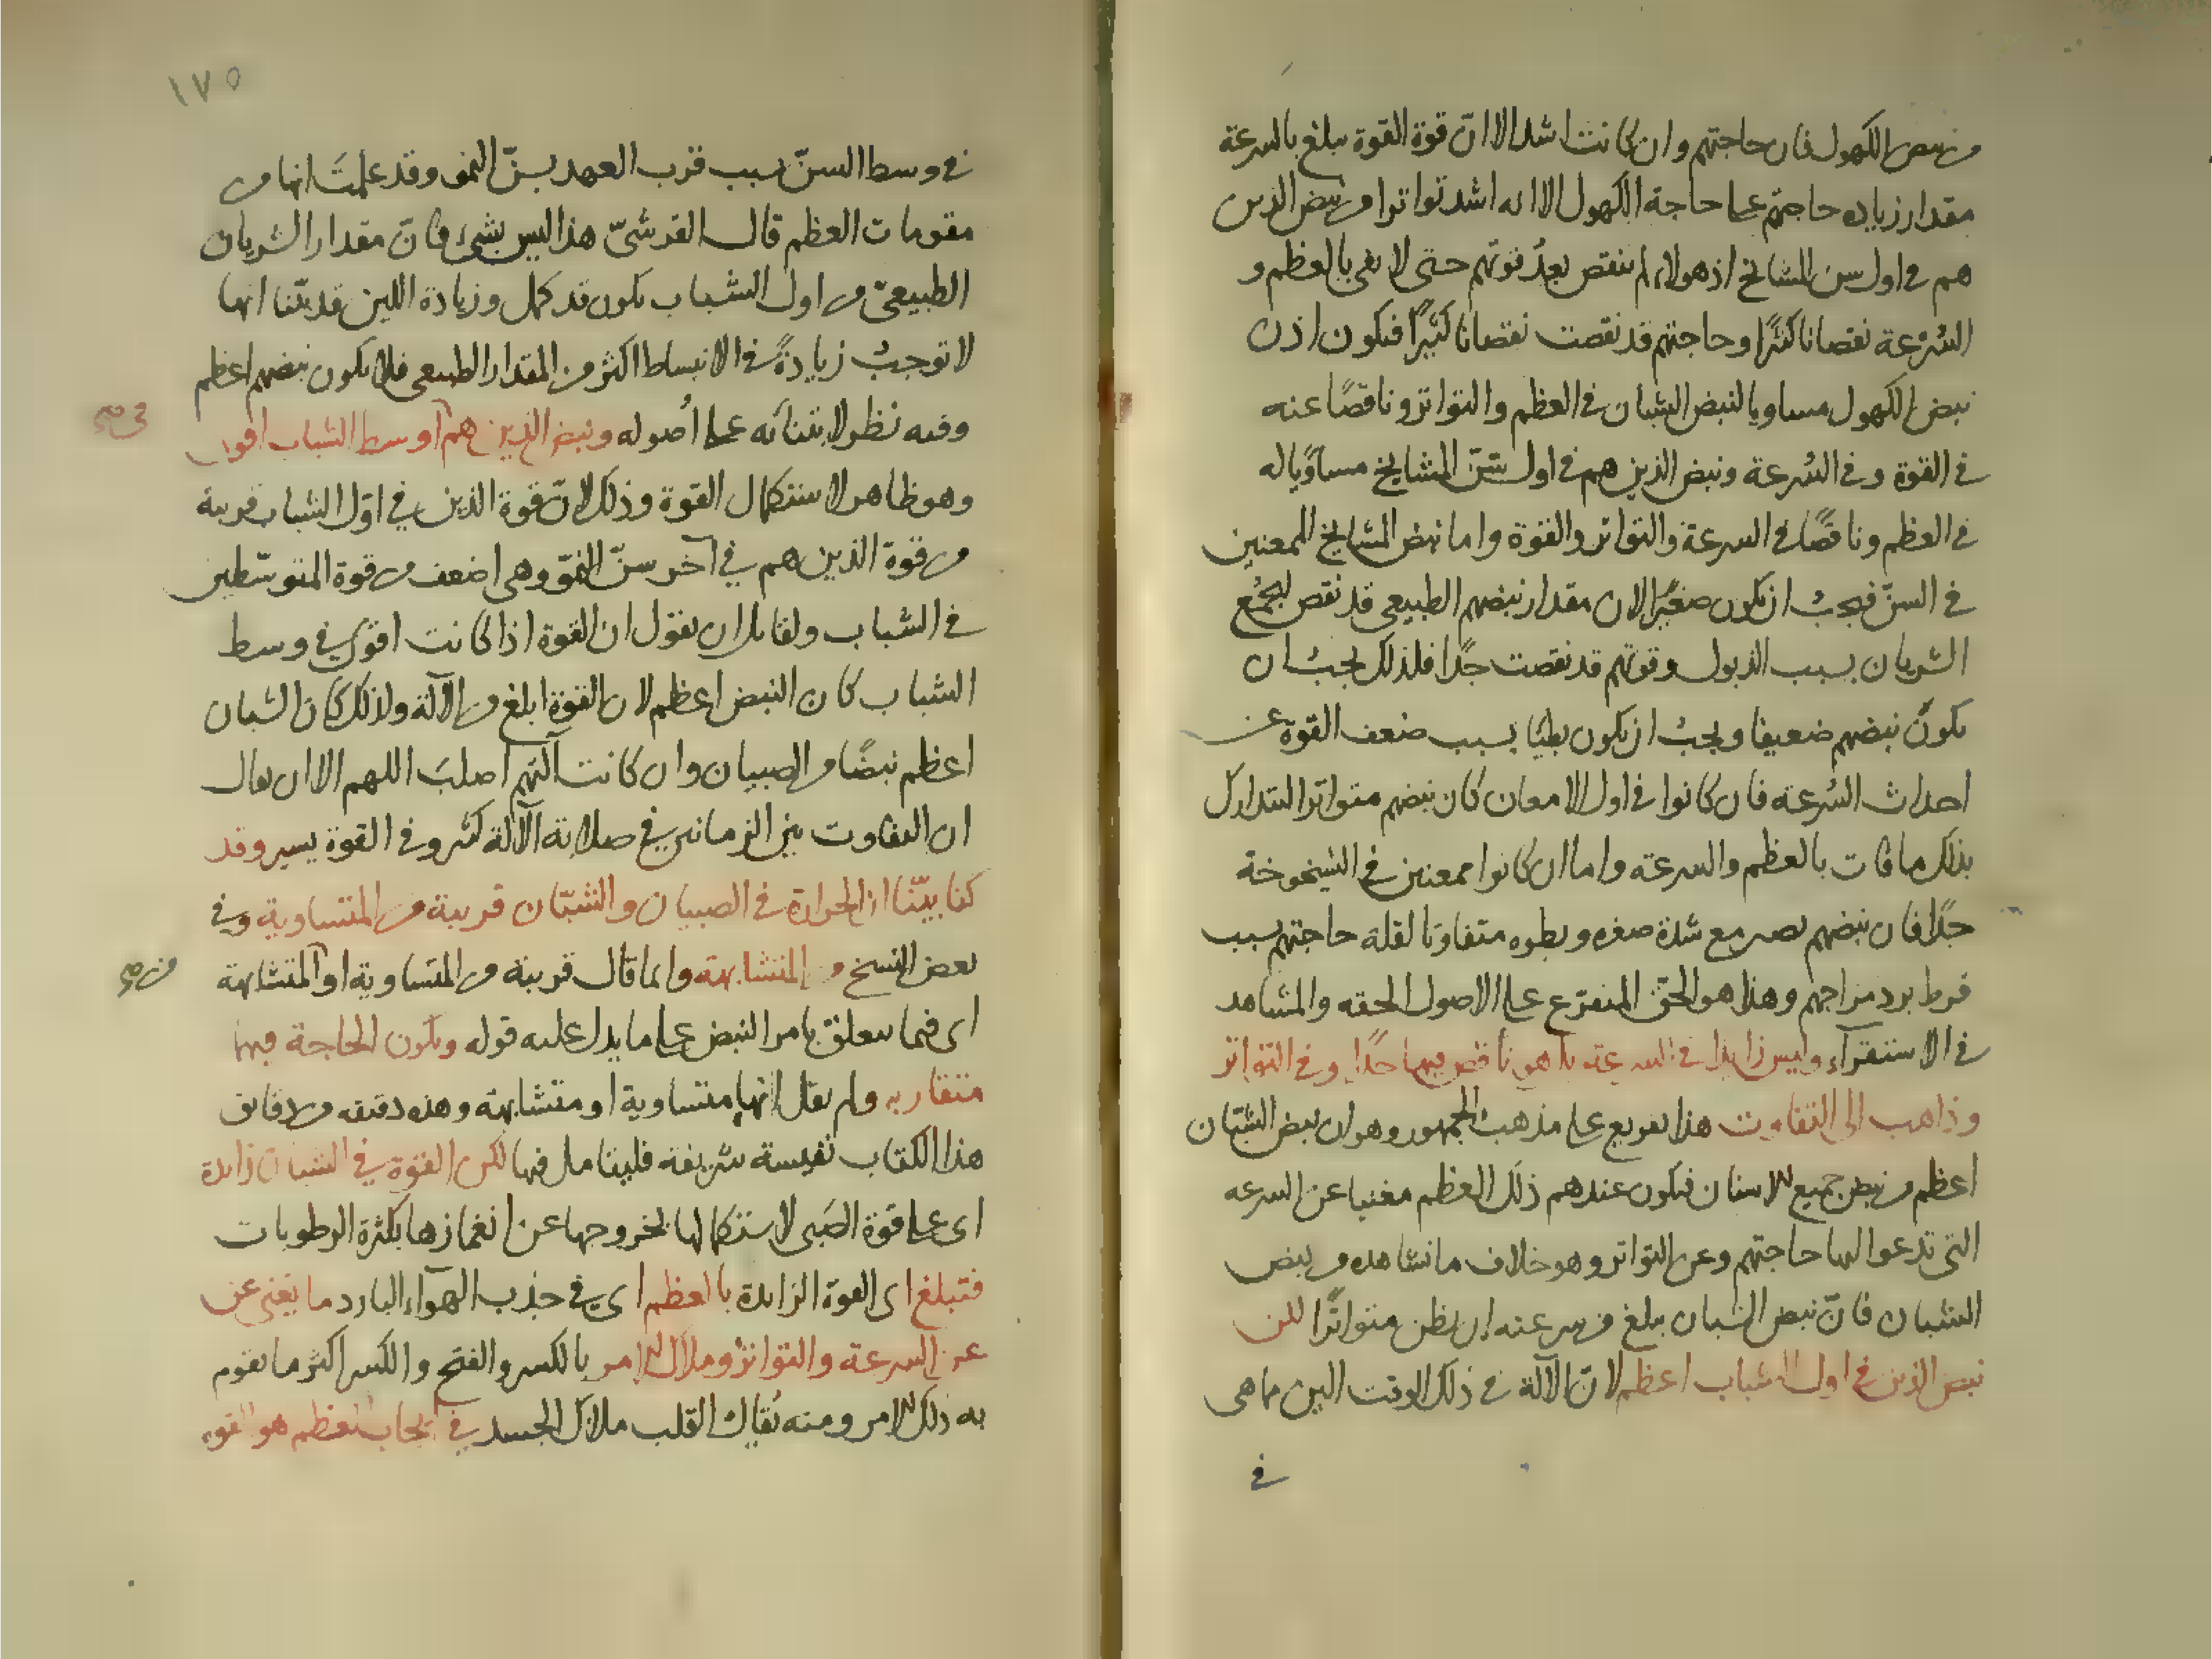 من نبض الكهول فان حاجتهم وان كانت اشد الا ان قوة القوة تبلغ بالسرعة
مقدار زياده حاجتهم على حاجة الكهول الا انه اشد تواترا من نبض الذين
هم في اول سن المشايخ اذ هولاء لم ينقص بعد قوتهم حتى لا يفى بالعظم و
السرعة نقصانا كثيرا وحاجتهم قد نقصت نقصانا كثيرا فيكون اذن
نبض الكهول مساويا لنبض الشبان في العظم والتواتر وناقصا عنه
في القوة وفي السرعة ونبض الذين هم في اول سن المشايخ مساويا له
في العظم وناقصا في السرعة والتواتر والقوة واما نبض المشايخ الممعنين
في السن فيجب ان يكون صغيرا لان مقدار نبضهم الطبيعي قد نقص لتجمع
الشريان بسبب الذبول وقوتهم قد نقصت جدا فلذلك يجب ان
يكون نبضهم ضعيفا ويجب ان يكون بطيئا بسبب ضعف القوة عن
احداث السرعة فان كانوا في اول الامعان كان نبضهم متواترا لتدارك
بذلك ما فات بالعظم والسرعة واما ان كانوا ممعنين في الشيخوخة
جدا فان نبضهم يصير مع شدة صغره وبطوه متفاوتا لقلة حاجتهم بسبب
فرط برد مزاجهم وهذا هو الحق المتفرع على الاصول الحقه والمشاهد
في الاستقرآء وليس زايدا في السرعة بل هو ناقص فيها جدا وفي التواتر
وذاهب الى التفاوت هذا تفريع على مذهب الجمهور وهو ان نبض الشبّان
اعظم من نبض جميع الاسنان فيكون عندهم ذلك العظم مغنيا عن السرعه
التي تدعوا اليها حاجتهم وعن التواتر وهو خلاف ما نشاهده من نبض
الشبان فانّ نبض الشبان يبلغ من سرعته ان يظن متواترًا لكن
نبض الذين في اول الشباب اعظم لانّ الآلة في ذلك الوقت الين مما هي
في
١٧٥
في وسط السنّ بسبب قرب العهد بسنّ النمو وقد علمتَ انها من
مقومات العظم قال القرشيّ هذا ليس بشيء فانّ مقدار الشريان
الطبيعيّ من اول الشباب يكون قد كمل وزيادة اللين قد بيّنا انها
لا توجبُ زيادةً في الانبساط اكثر من المقدار الطبيعي فلا يكون نبضهم اعظم
وفيه نظر لابتنائه على أصوله ونبض الذين هم اوسط الشباب اقوى
وهو ظاهر لاستكمال القوة وذلك لانّ قوة الذين في اوّل الشباب قريبة
من قوة الذين هم في آخر سنّ النموّ وهي اضعف من قوة المتوسّطين
في الشباب ولقايل ان يقول ان القوة اذا كانت اقوى في وسط
الشباب كان النبض اعظم لان القوة ابلغ من الآلة ولذلك كان الشبان
اعظم نبضًا من الصبيان وان كانت آلتهم اصلبَ اللهم الا ان يقال
ان التفاوت بين الزمانين في صلابة الآلة كثير وفي القوة يسير وقد
كنا بيّنّا ان الحرارة في الصبيان والشبّان قريبة من المتساوية وفي
بعض النسخ من المتشابهة وانما قال قريبة من المتساوية او المتشابهة
اى فيما يتعلق بامر النبض على ما يدل عليه قوله وتكون الحاجة فيها
متقاربه ولم يقل انها متساوية او متشابهة وهذه دقيقه من دقايق
هذا الكتاب نفيسة شريفة فليتامل فيها لكن القوة في الشبان زايدة
اى على قوة الصَبى لاستكمالها بخروجها عن انغمازها بكثرة الرطوبات
فتبلغ اى القوة الزايدة بالعظم اى في جذب الهوآء البارد ما يغني عن
عن السرعة والتواتر وملاك الامر بالكسر والفتح والكسر اكثر ما يقوم
به ذلك الامر ومنه يُقال القلب ملاك الجسد في ايجاب العظم هو القوه